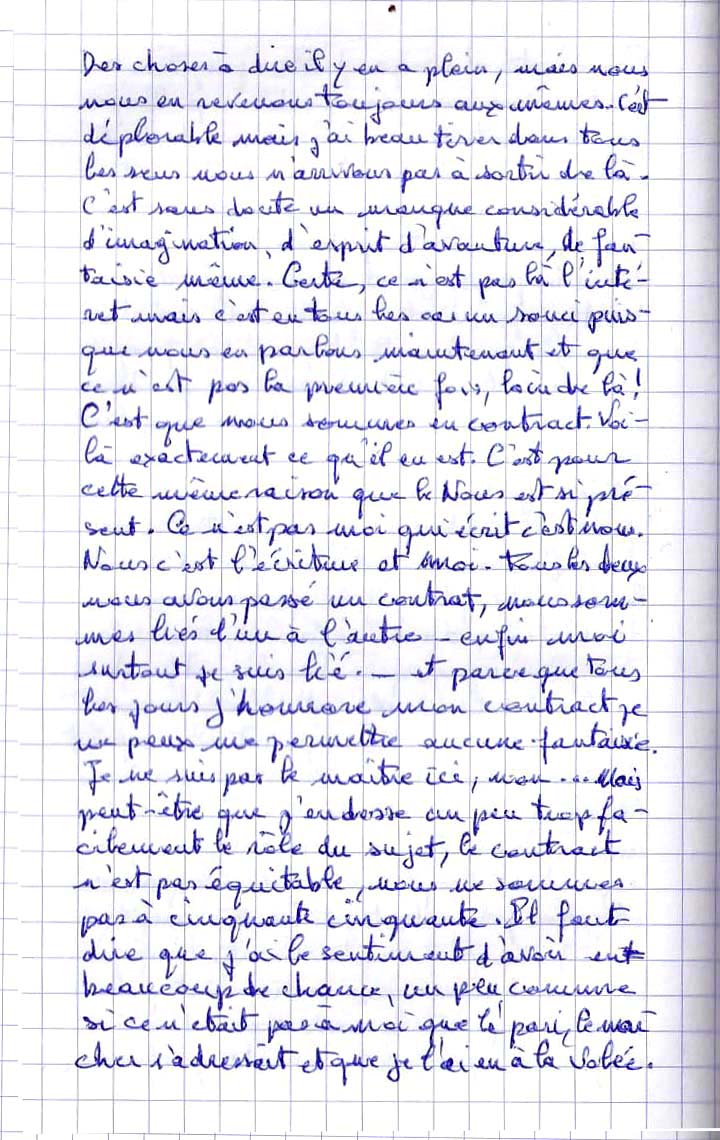 Des choses à dire il y en a plein, mais nous
nous en revenons toujours aux mêmes. C'est
déplorable mais j'ai beau tirer dans tous
les sens nous n'arrivons pas à sortir de là.
C'est sans doute un manque considérable
d'imagination, d'esprit d'avanture, de fan-
taisie même. Certe, ce n'est pas là l'inté-
ret mais c'est en tous les cas un souci puis-
que nous en parlons maintenant et que
ce n'est pas la première fois, loin de là !
C'est que nous sommes en contract. Voi-
là exactement ce qu'il en est. C'est pour
cette même raison que le Nous est si pré-
sent. Ce n'est pas moi qui écrit c'est nous.
Nous c'est l'écriture et moi. Tous les deux
nous avons passé un contrat, nous som-
mes liés l'un à l'autre - enfin moi
surtout je suis lié. - et parce que tous
les jours j'honore mon contract je
ne peux me permettre aucune fantaisie.
Je ne suis pas le maître ici, non... Mais
peut-être que j'endosse un peu trop fa-
cilement le rôle du sujet, le contract
n'est pas équitable, nous ne sommes
pas à cinquante cinquante. Il faut
dire que j'ai le sentiment d'avoir eu
beaucoup de chance, un peu comme
si ce n'était pas à moi que le pari, le mar
ché s'adressait et que je l'ai eu à la volée.